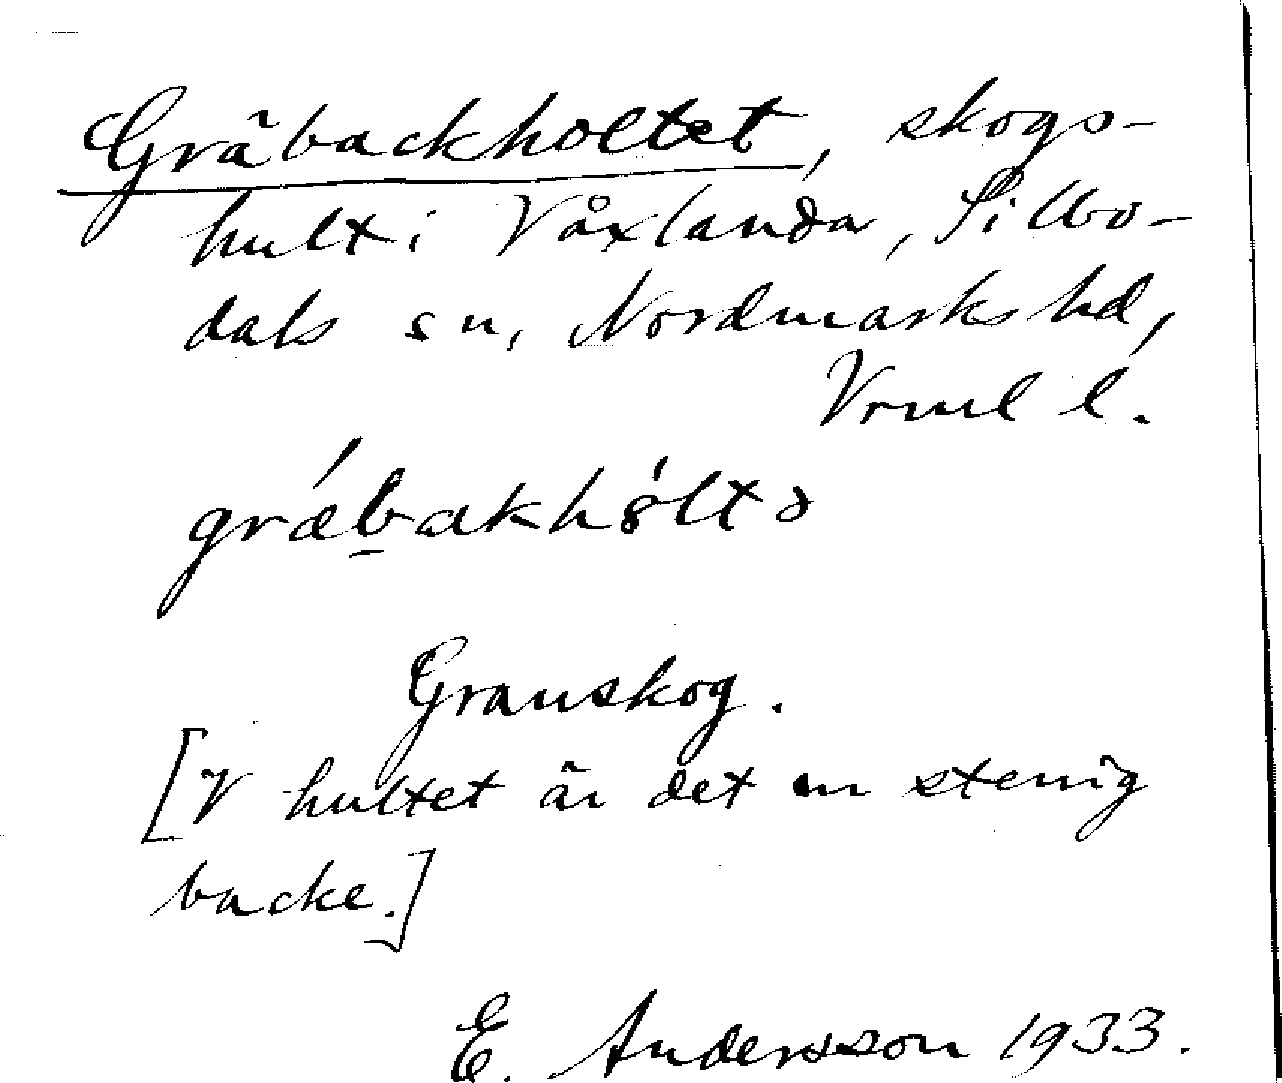 Gräbackholtet, skogs-
hult i Våxlanda, Silbo-
dals sn, Nordmarks hd,
Vrml l.
græ̍bakhòltə
Granskog.
[I hultet är det en stenig
backe.]
E. Andersson 1933.